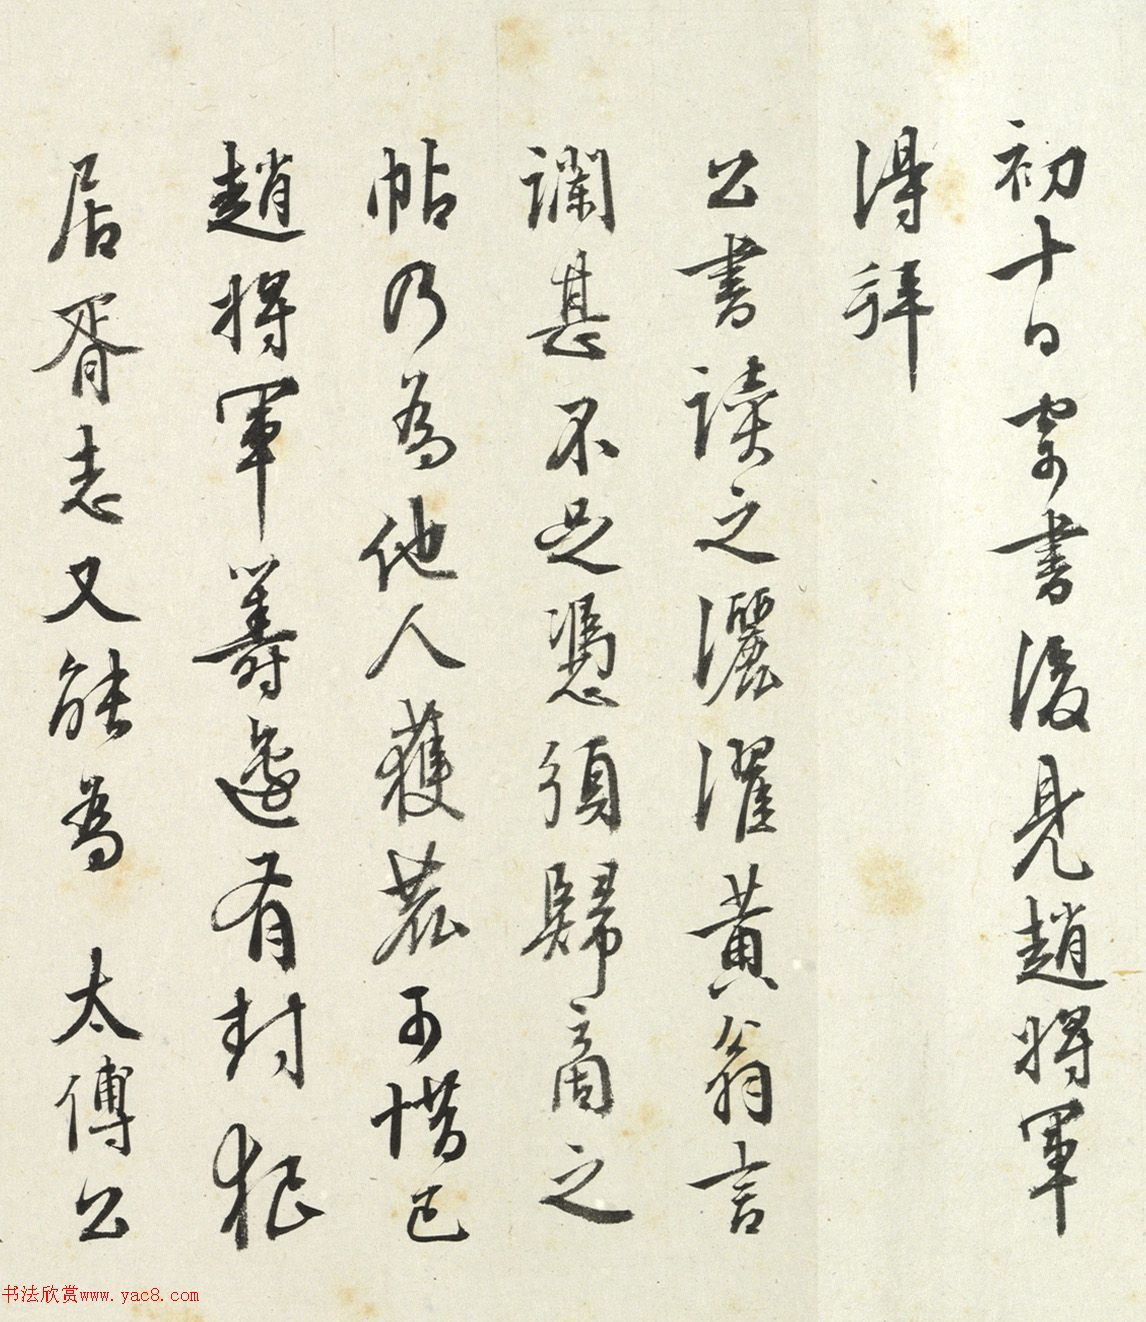 初十日寄書後見趙將軍
得拜
公書讀之灑濯黃翁言
讕甚不足憑須歸商之
帖乃為他人獲農可惜已
趙將軍籌邊有封狼
居胥志又能為太傅公
书法欣赏www.yac8.com